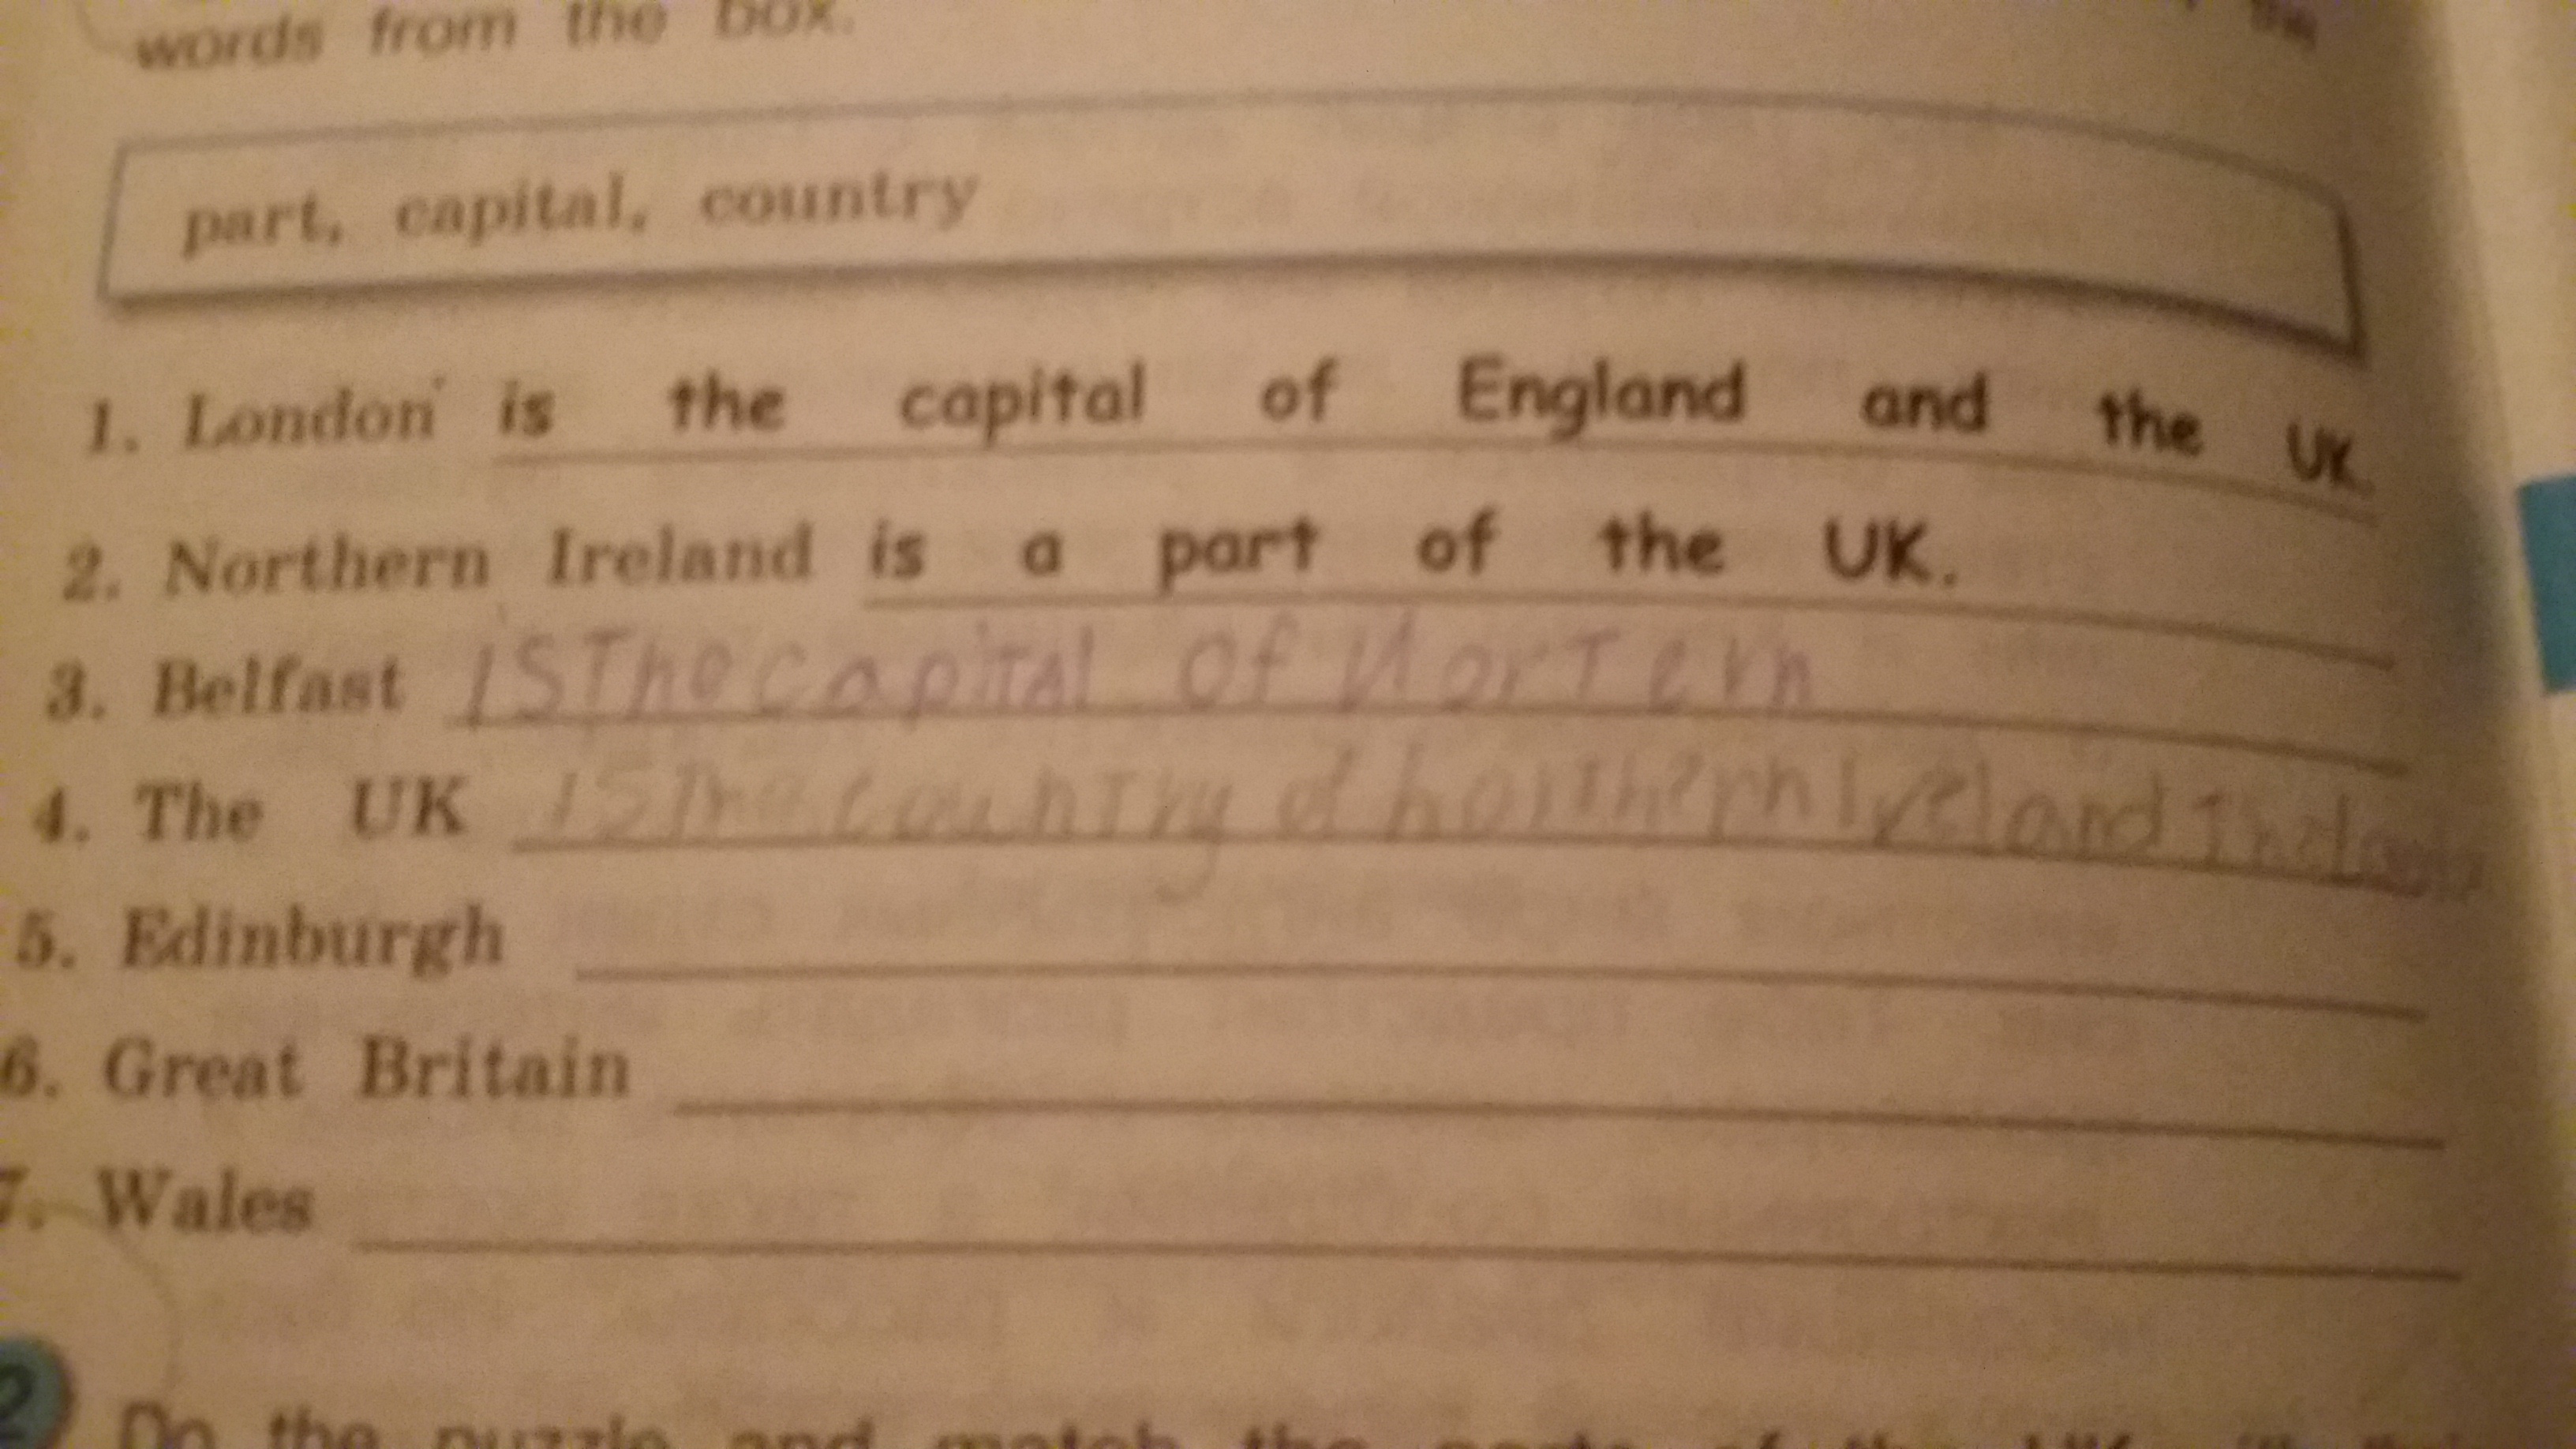 words from the box. the
part, capital, country
1. London is the capital of England and the UK.
2. Northern Ireland is a part of the UK.
3. Belfast is The capiTAl of NorTern
4. The UK is The counTry of horthern Ireland
5. Edinburgh
6. Great Britain
7. Wales
2 Do the puzzle and match the parts of the UK